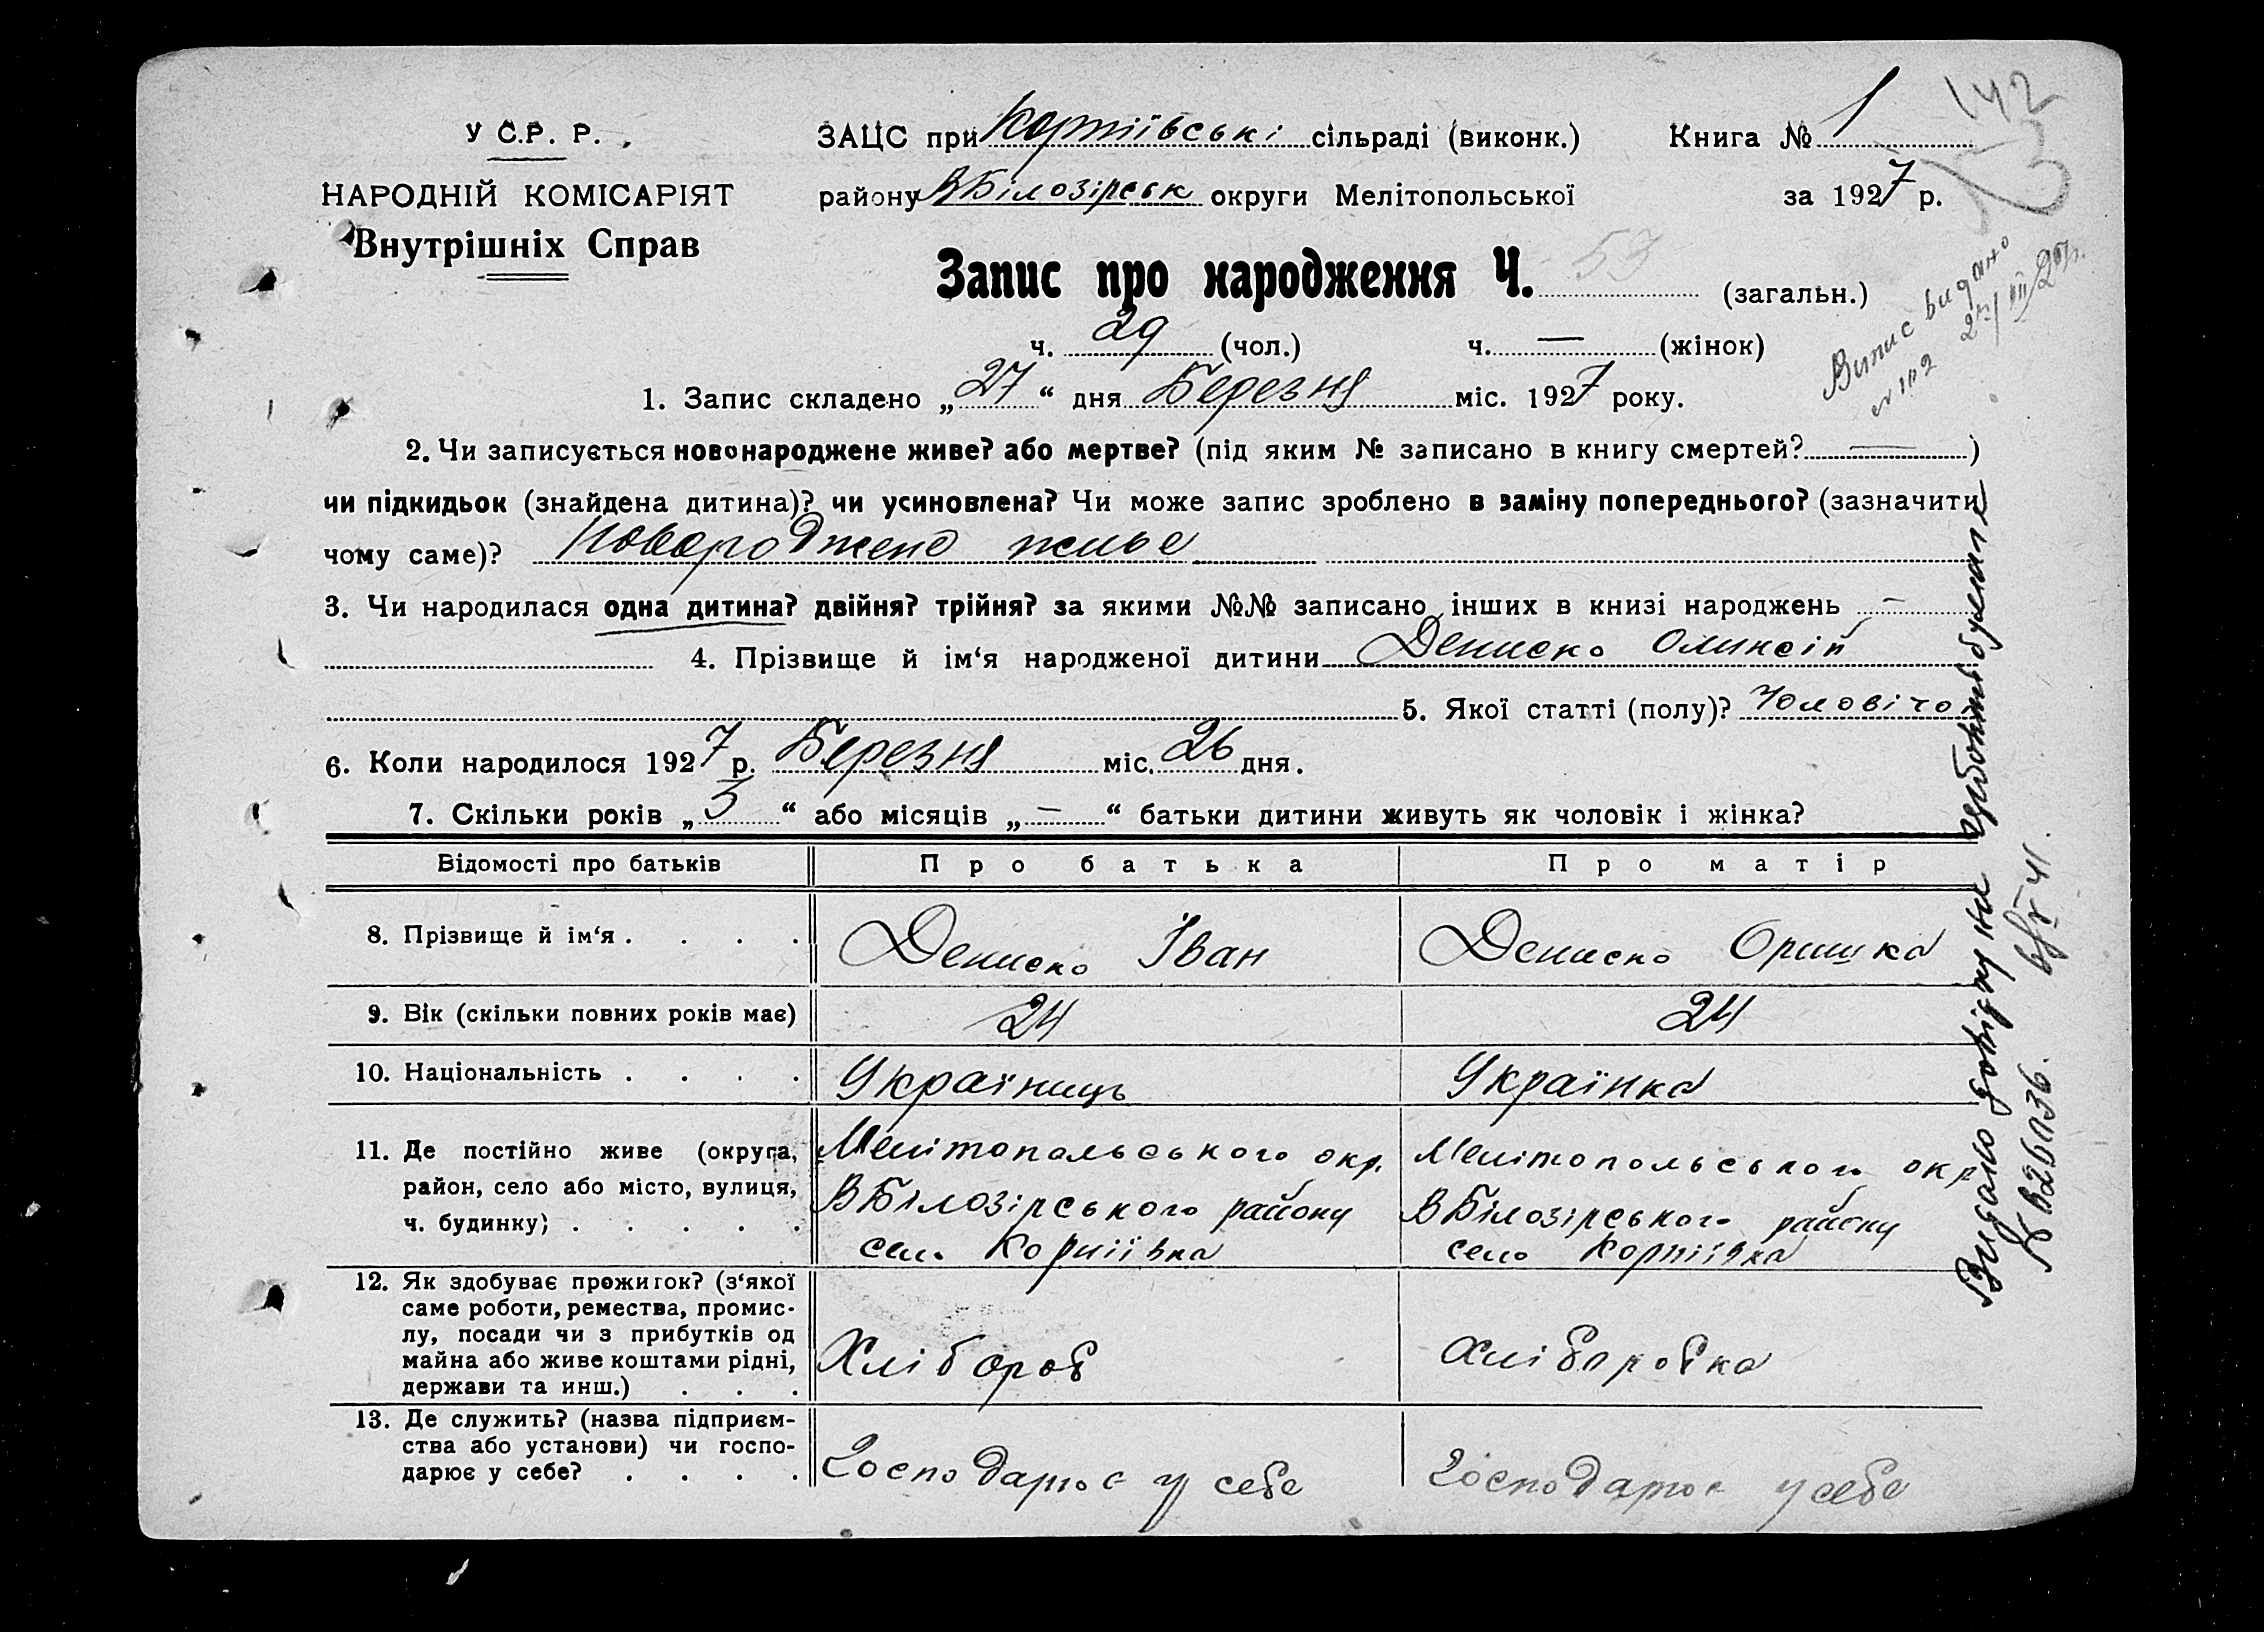 142
У С.Р. Р.
ЗАЦС при Корніївські сільраді (виконк.) Книга № 1
53
НАРОДНІЙ КОМІСАРІЯТ
району ВБілозірськ округи Мелітопольської за 1927 р.
Внутрішніх Справ
Запис про народження Ч. 53 (загальн.)
Випис видано
№ 102
ч. 29 (чол.) ч. — (жінок)
1. Запис складено „ 27 “ дня Березня міс. 1927 року.
2. Чи записується новонароджене живе? або мертве? (під яким № записано в книгу смертей? — )
чи підкидьок (знайдена дитина)? чи усиновлена? Чи може запис зроблено в заміну попереднього? (зазначити
чому саме)? Новороджене живе
3. Чи народилася одна дитина? двійня? трійня? за якими №№ записано інших в книзі народжень —
4. Прізвище й ім‘я народженої дитини Дениско Олинсій
5. Якої статті (полу)? Чоловічої
6. Коли народилося 1927 р. Березня міс. 26 дня.
7. Скільки років „ 3 “ або місяців „ — “ батьки дитини живуть як чоловік і жінка?
Відомості про батьків Про батька Про матір
8. Прізвище й ім‘я . . . . Дениско Іван Дениско Оришка
9. Вік (скільки повних років має) 24 24
10. Національність . . . . Україниць Українка
11. Де постійно живе (округа, Мелітопальського окр. Мелітопольського окр
район, село або місто, вулиця, ВБілозірського району ВБілозірського району
ч. будинку) . . . . . село Корніївка село Корніївка
12. Як здобуває прожиток? (з‘якої
саме роботи, ремества, промис-
лу, посади чи з прибутків од
майна або живе коштами рідні, Хлібороб Хлібаробка
держави та инш.) . . .
13. Де служить? (назва підприєм-
ства або установи) чи госпо-
дарює у себе? . . . . Господарює у себе Господарює у себе
Видано довідку на
№ 826036.